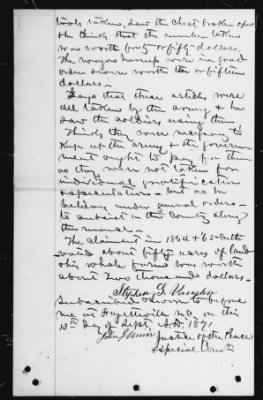 tools taken, saw the chest broken open
& he thinks that the number taken
was worth forty or fifty dollars.
The wagon harness were in good
order & were worth ten or fifteen
dollars -
Says that these articles were
all taken by the army & he
saw the soldiers using them
Thinks they were necessary to
Keep up the army & the govern
ment ought to pay for them
as they were not taken for
individual gratification
& speculation - but as he
believes under general orders -
to subsist on the Country along
the
The Claimant in 1864 & '65 culti
vated about fifty acres of land
& his whole farm was worth
about two thousand dollars -
Stephen G. Vaughn
Subscribed & sworn to before
me in Fayetteville N.C. on this
13th day of Sept, A.D. 1871
Justice of the Peace
& Special Com